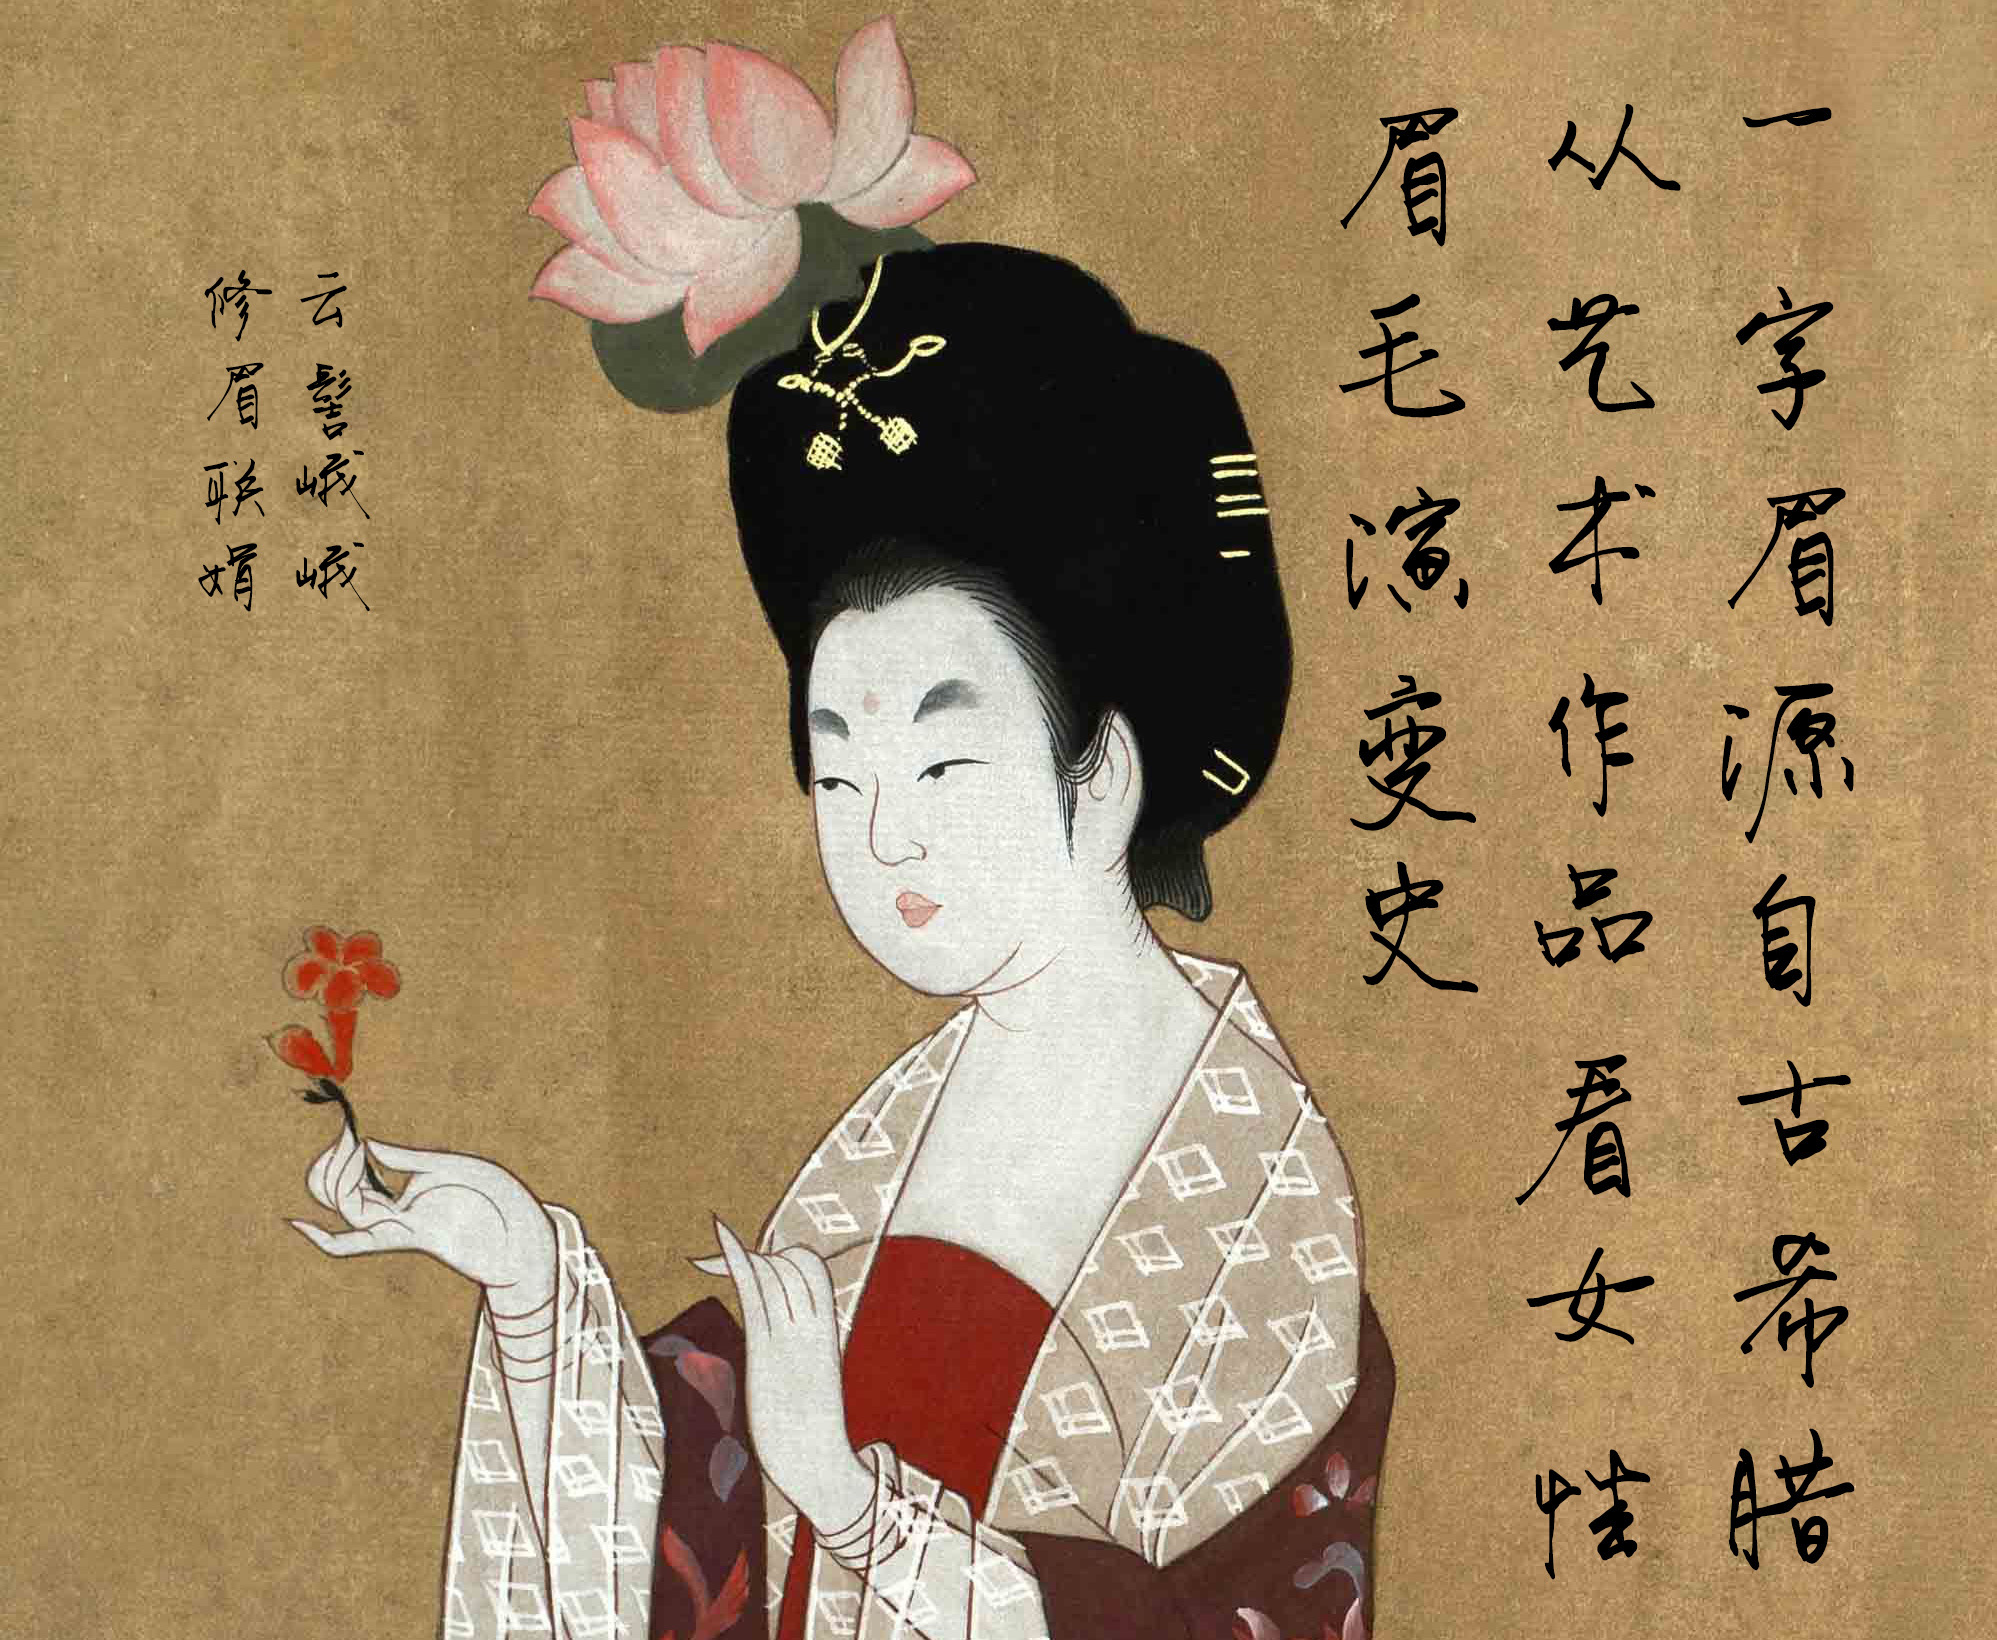 一字眉源自古希腊
从艺术作品看女性
眉毛演变史
云髻峨峨
修眉联娟